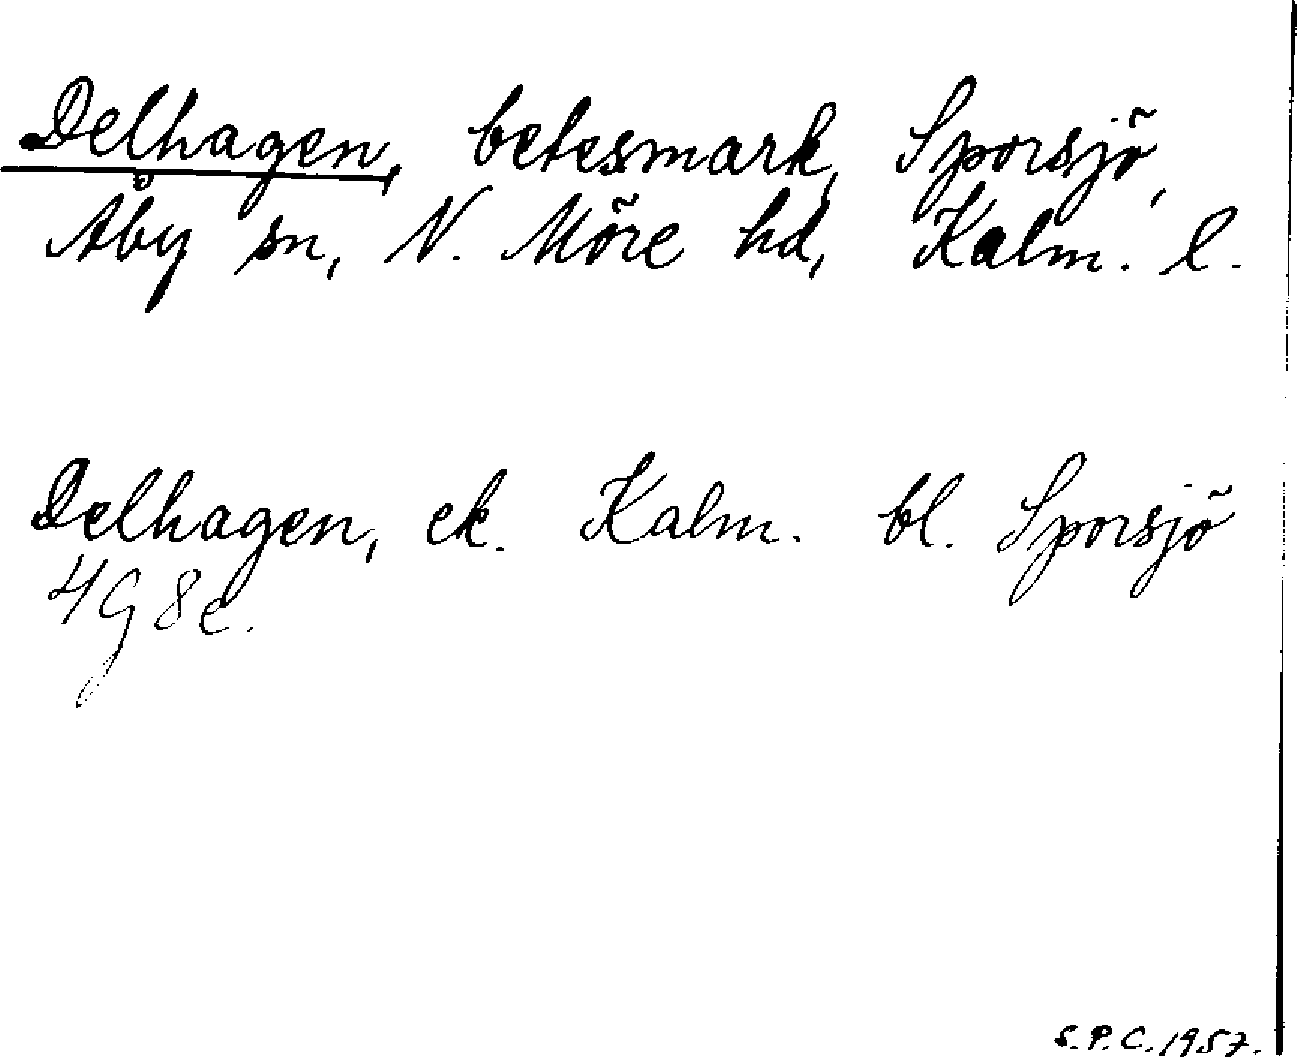 Delhagen, betesmark, Sporsjö,
Åby sn, N. Möre hd, Kalm. l.
Delhagen, ek. Kalm. bl. Sporsjö
4G 8e.
S.P.C. 1957.